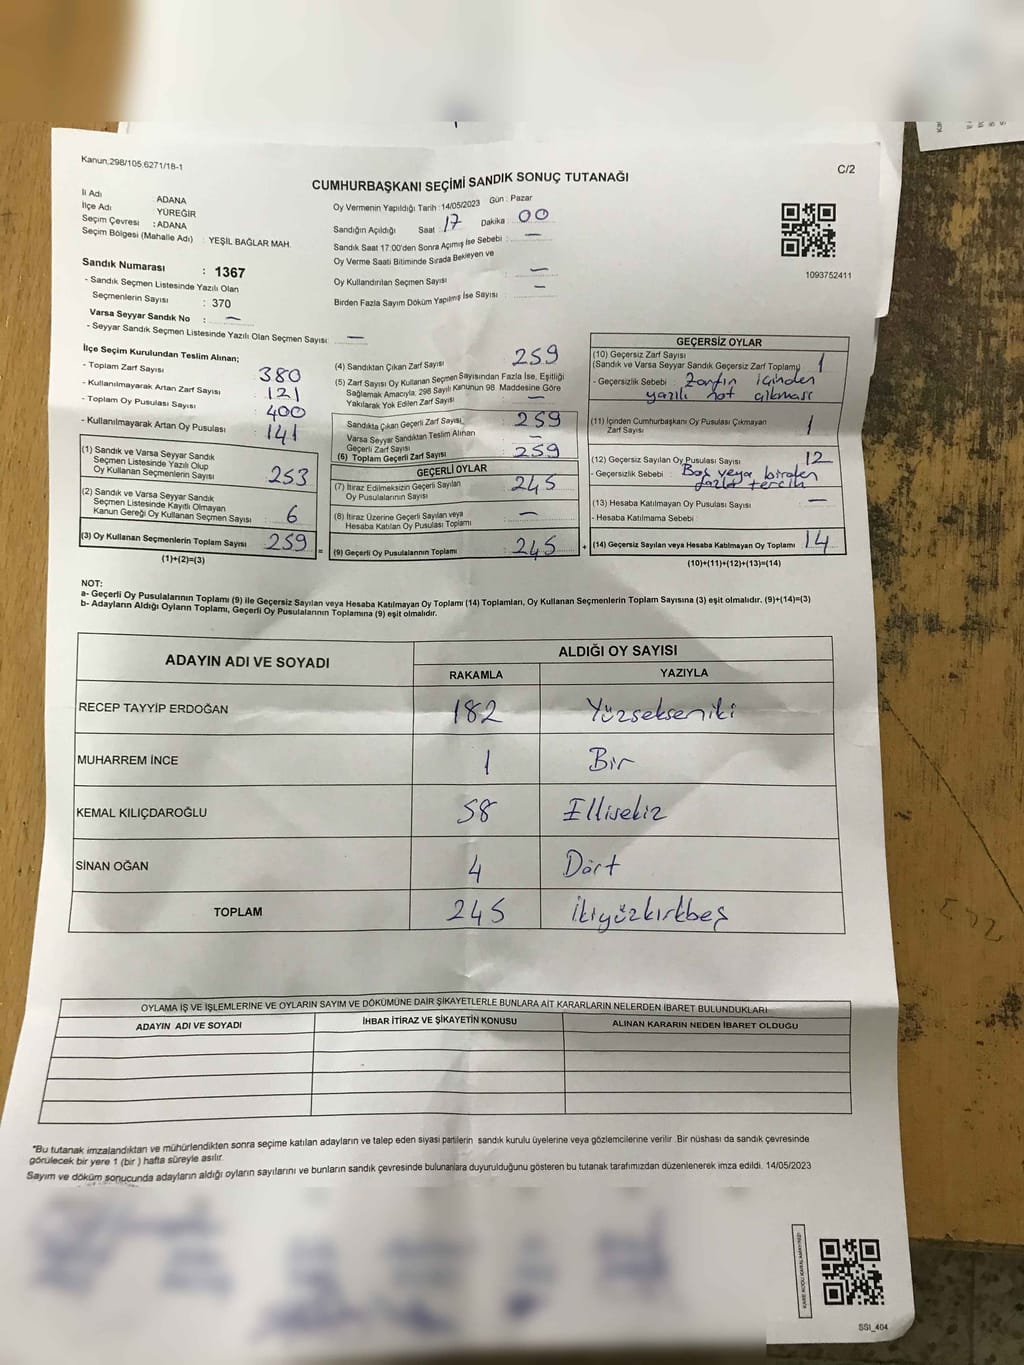 Kanun,298/105.6271/18-1
C/2
CUMHURBAŞKANI SEÇİMİ SANDIK SONUÇ TUTANAĞI
İl Adı ADANA
İlçe Adı YÜREĞİR
Seçim Çevresi : ADANA
Seçim Bölgesi (Mahalle Adı) : YEŞİL BAĞLAR MAH.
Sandık Numarası : 1367
- Sandık Seçmen Listesinde Yazılı Olan
Seçmenlerin Sayısı : 370
Varsa Seyyar Sandık No : —
- Seyyar Sandık Seçmen Listesinde Yazılı Olan Seçmen Sayısı: —
Oy Vermenin Yapıldığı Tarih : 14/05/2023 Gün : Pazar
Sandığın Açıldığı Saat : 17 Dakika : 00
Sandık Saat 17:00'den Sonra Açılmış İse Sebebi : —
Oy Verme Saati Bitiminde Sırada Bekleyen ve
Oy Kullandırılan Seçmen Sayısı : —
Birden Fazla Sayım Döküm Yapılmış İse Sayısı : —
1093752411
İlçe Seçim Kurulundan Teslim Alınan;
- Toplam Zarf Sayısı : 380
- Kullanılmayarak Artan Zarf Sayısı : 121
- Toplam Oy Pusulası Sayısı : 400
- Kullanılmayarak Artan Oy Pusulası : 141
(1) Sandık ve Varsa Seyyar Sandık
Seçmen Listesinde Yazılı Olup
Oy Kullanan Seçmenlerin Sayısı : 253
(2) Sandık ve Varsa Seyyar Sandık
Seçmen Listesinde Kayıtlı Olmayan
Kanun Gereği Oy Kullanan Seçmen Sayısı : 6
(3) Oy Kullanan Seçmenlerin Toplam Sayısı : 259 =
(1)+(2)=(3)
(4) Sandıktan Çıkan Zarf Sayısı : 259
(5) Zarf Sayısı Oy Kullanan Seçmen Sayısından Fazla İse, Eşitliği
Sağlamak Amacıyla, 298 Sayılı Kanunun 98. Maddesine Göre
Yakılarak Yok Edilen Zarf Sayısı : —
Sandıkta Çıkan Geçerli Zarf Sayısı, : 259
Varsa Seyyar Sandıktan Teslim Alınan
Geçerli Zarf Sayısı : —
(6) Toplam Geçerli Zarf Sayısı : 259
GEÇERLİ OYLAR
(7) İtiraz Edilmeksizin Geçerli Sayılan
Oy Pusulalarının Sayısı : 245
(8) İtiraz Üzerine Geçerli Sayılan veya
Hesaba Katılan Oy Pusulası Toplamı : —
(9) Geçerli Oy Pusulalarının Toplamı : 245 +
GEÇERSİZ OYLAR
(10) Geçersiz Zarf Sayısı
(Sandık ve Varsa Seyyar Sandık Geçersiz Zarf Toplamı) 1
- Geçersizlik Sebebi : Zarfın içinden
yazılı not çıkması
(11) İçinden Cumhurbaşkanı Oy Pusulası Çıkmayan
Zarf Sayısı : 1
(12) Geçersiz Sayılan Oy Pusulası Sayısı : 12
- Geçersizlik Sebebi : Boş veya birden
fazla tercih
(13) Hesaba Katılmayan Oy Pusulası Sayısı : —
- Hesaba Katılmama Sebebi :
(14) Geçersiz Sayılan veya Hesaba Katılmayan Oy Toplamı : 14
(10)+(11)+(12)+(13)=(14)
NOT:
a- Geçerli Oy Pusulalarının Toplamı (9) ile Geçersiz Sayılan veya Hesaba Katılmayan Oy Toplamı (14) Toplamları, Oy Kullanan Seçmenlerin Toplam Sayısına (3) eşit olmalıdır. (9)+(14)=(3)
b- Adayların Aldığı Oyların Toplamı, Geçerli Oy Pusulalarının Toplamına (9) eşit olmalıdır.
ADAYIN ADI VE SOYADI ALDIĞI OY SAYISI
RAKAMLA YAZIYLA
RECEP TAYYİP ERDOĞAN 182 Yüzsekseniki
MUHARREM İNCE 1 Bir
KEMAL KILIÇDAROĞLU 58 Ellisekiz
SİNAN OĞAN 4 Dört
TOPLAM 245 İkiyüzkırkbeş
OYLAMA İŞ VE İŞLEMLERİNE VE OYLARIN SAYIM VE DÖKÜMÜNE DAİR ŞİKAYETLERLE BUNLARA AİT KARARLARIN NELERDEN İBARET BULUNDUKLARI
ADAYIN ADI VE SOYADI İHBAR İTİRAZ VE ŞİKAYETİN KONUSU ALINAN KARARIN NEDEN İBARET OLDUĞU
*Bu tutanak imzalandıktan ve mühürlendikten sonra seçime katılan adayların ve talep eden siyasi partilerin sandık kurulu üyelerine veya gözlemcilerine verilir .Bir nüshası da sandık çevresinde
görülecek bir yere 1 (bir ) hafta süreyle asılır.
Sayım ve döküm sonucunda adayların aldığı oyların sayılarını ve bunların sandık çevresinde bulunanlara duyurulduğunu gösteren bu tutanak tarafımızdan düzenlenerek imza edildi. 14/05/2023
SSI_404